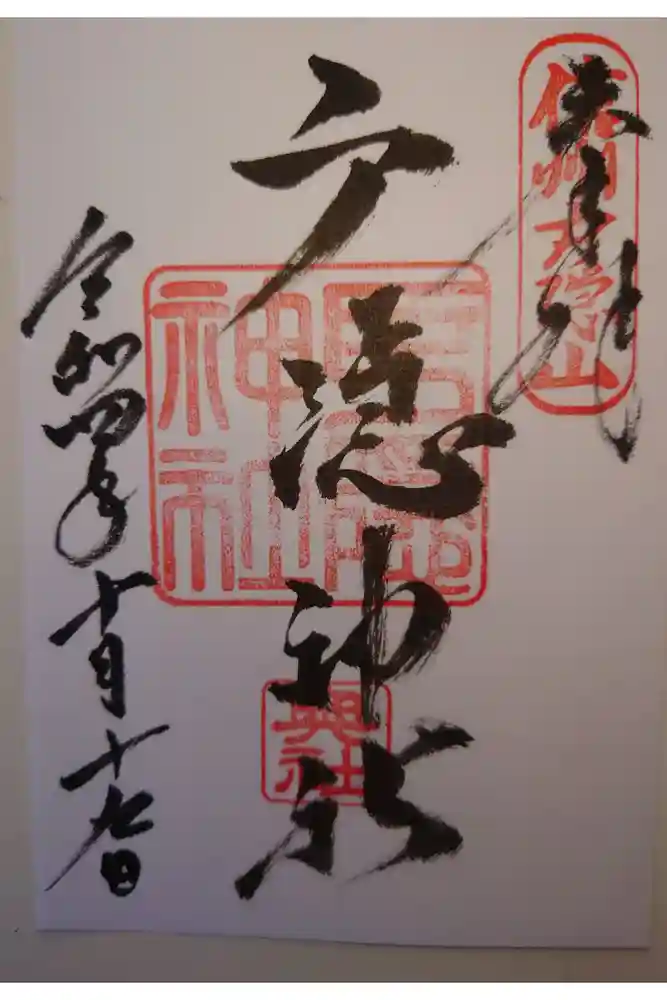 奉拝
信州戸隠山
戸隠神社
戸隠
神社
奥社
令和四年十月十九日